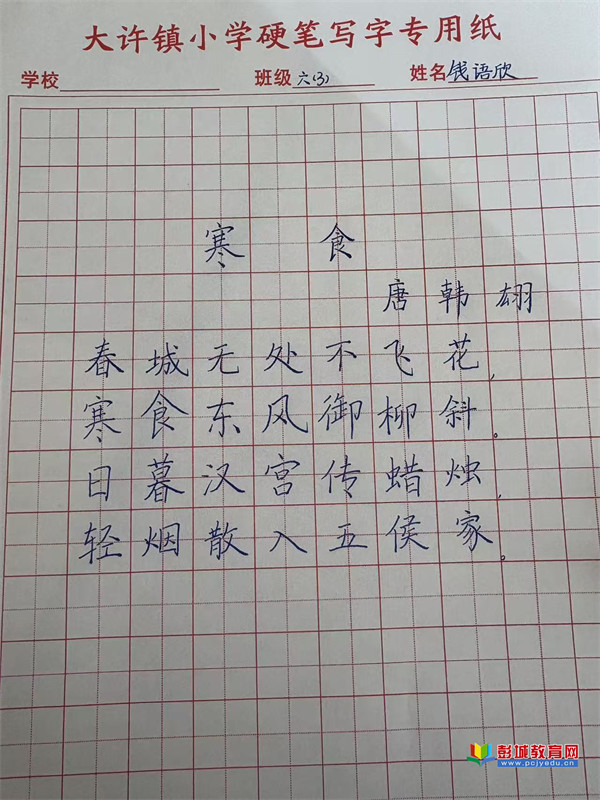 大许镇小学硬笔写字专用纸
学校 班级 六(3) 姓名 钱语欣
寒 食
唐 韩 翃
春城无处不飞花,
寒食东风御柳斜。
日暮汉宫传蜡烛,
轻烟散入五侯家。
彭城教育网
www.pcjyedu.cn